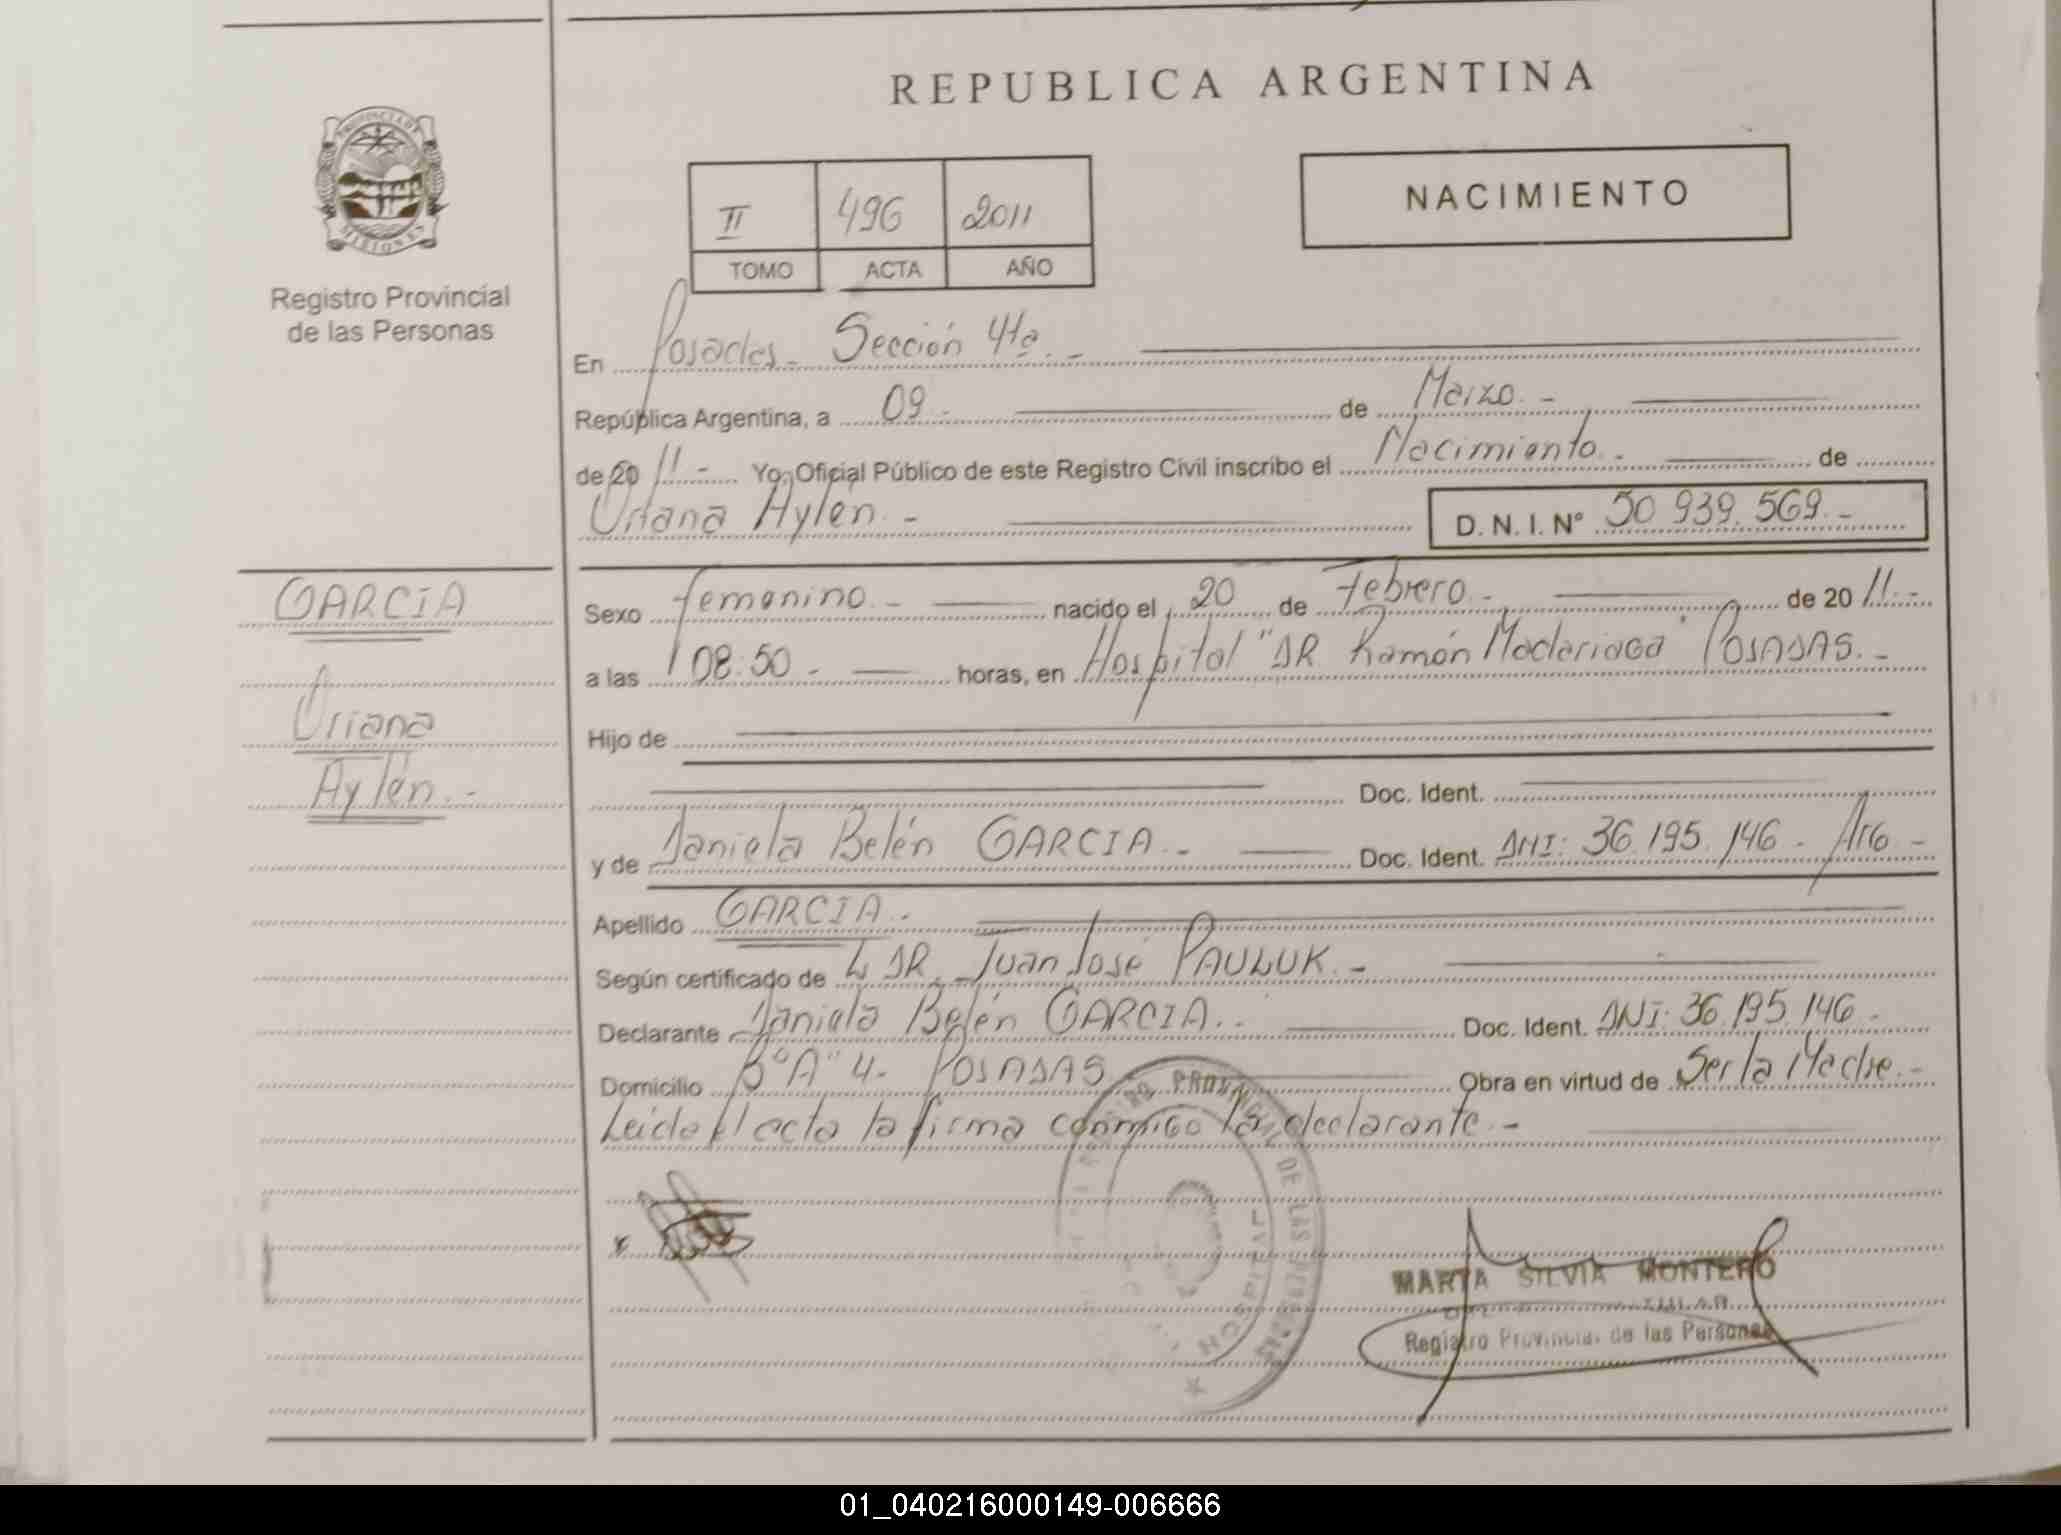 REPUBLICA ARGENTINA
PROVINCIA DE MISIONES
Registro Provincial
de las Personas
II 496 2011
TOMO ACTA AÑO
NACIMIENTO
En Posadas - Sección 4ta. -
República Argentina, a 09 - de Marzo. -
de 20 11 - Yo, Oficial Público de este Registro Civil inscribo el Nacimiento. - de
Oriana Aylén. - D. N. I. N° 50 939. 569. -
GARCIA
Oriana
Aylén. -
Sexo femenino. - nacido el 20 de Febrero. - de 20 11. -
a las 08:50 - horas, en Hospital "DR Ramón Madariaga" POSADAS. -
Hijo de
Doc. Ident.
y de Daniela Belén GARCIA. - Doc. Ident. DNI: 36.195.146 - Arg -
Apellido GARCIA.
Según certificado de DR. Juan José PAULUK. -
Declarante Daniela Belén GARCIA. - Doc. Ident. DNI: 36.195.146 -
Domicilio B° "A" 4 - POSADAS Obra en virtud de Ser la Madre. -
Leída el acta la firma conmigo la declarante. -
PROVINCIAL DE LAS PERSONAS
HOSPITAL
MARTA SILVIA MONTERO
Registro Provincial de las Personas
01_040216000149-006666